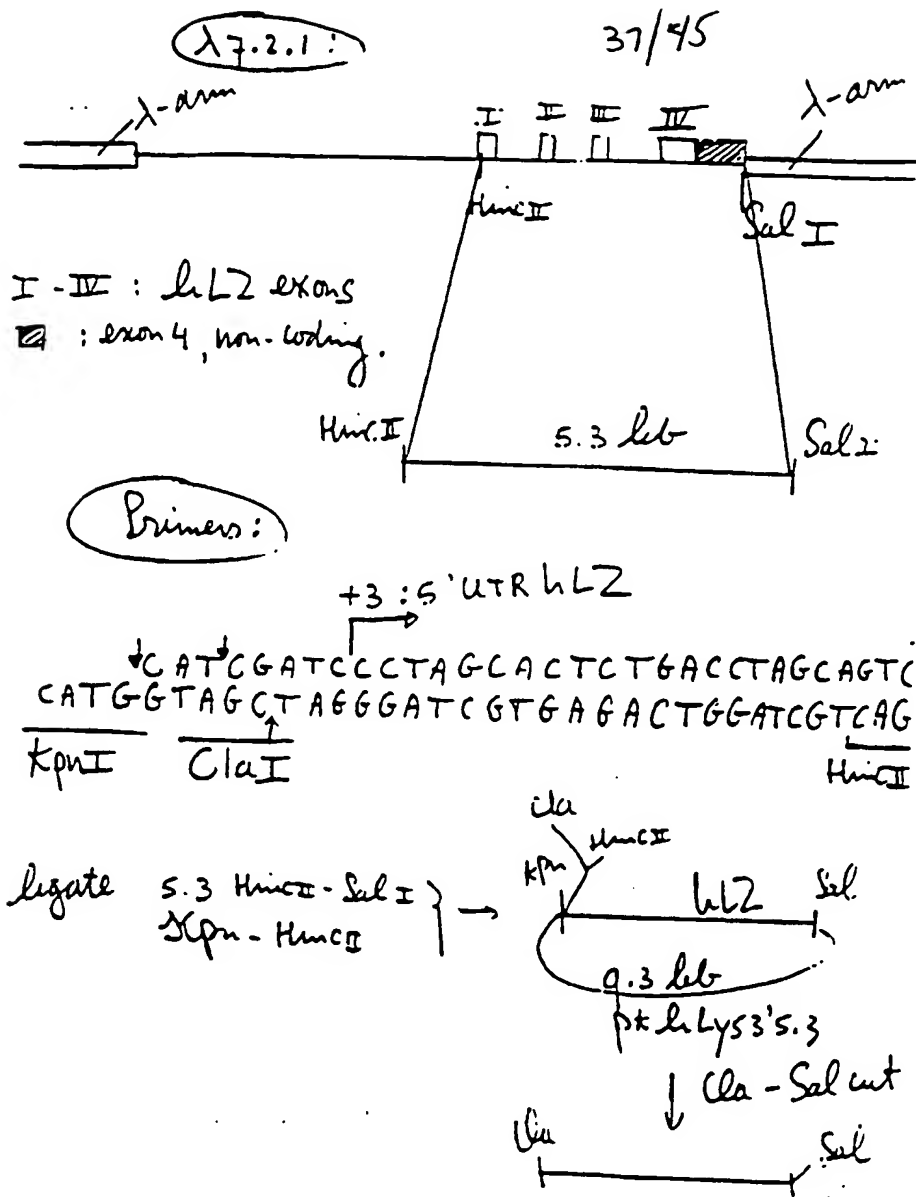 λ 7.2.1:
37/45
λ-arm
λ-arm
I II III IV
HincII
Sal I
I - IV : hLZ exons
: exon 4, non-coding.
HincII
5.3 kb
Sal I
Primers:
+3 : 5' UTR hLZ
CATCGATCCCTAGCACTCTGACCTAGCAGTC
CATGGTAGCTAGGGATCGTGAGACTGGATCGTCAG
KpnI
ClaI
HincII
Cla
HincII
Kpn
hLZ
Sal
ligate 5.3 HincII - Sal I
Kpn - HincII
9.3 kb
hLys3'5.3
Cla - Sal cut
Cla
Sal